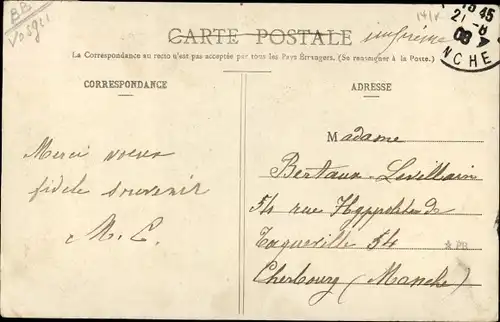 BB
Vosges
18 45
21 - 8
08
NCHE
CARTE POSTALE
La Correspondance au recto n'est pas acceptée par tous les Pays Étrangers. (Se renseigner à la Poste.)
CORRESPONDANCE
ADRESSE
Merci
fidele souvenir
M. C.
Madame
Bertaux-Levillain
54 rue Hyppolite de
Tocqueville 54
Cherbourg (Manche)
* PB